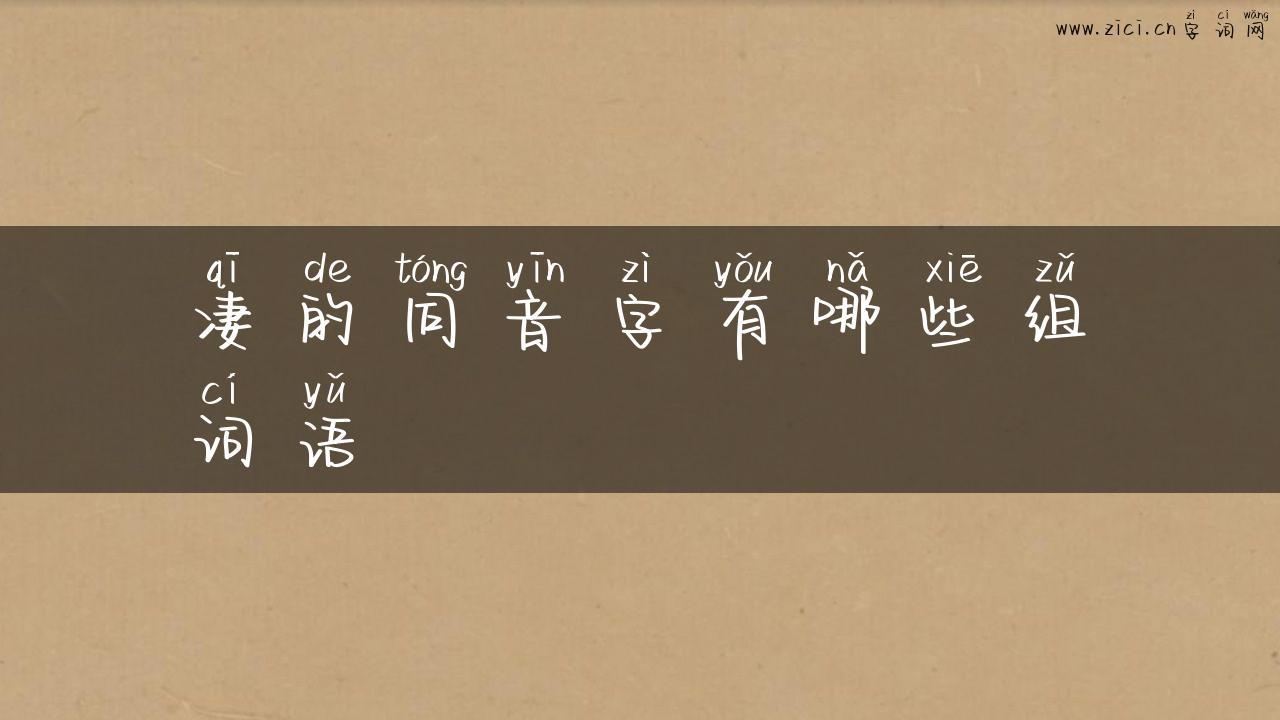 zì cí wǎng
www.zici.cn 字词网
qī de tóng yīn zì yǒu nǎ xiē zǔ
凄的同音字有哪些组
cí yǔ
词语